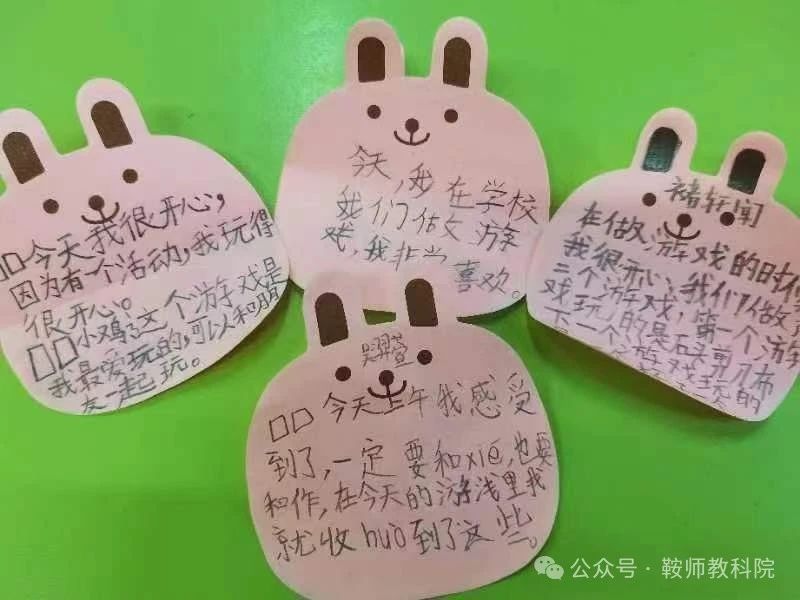 □□今天我很开心,
因为有一个活动,我玩得
很开心。
□□小鸡这个游戏是
我最爱玩的,可以和朋
友一起玩。
今天,我在学校
我们做文游
戏,我非常
喜欢。
褚轩闻
在做游戏的时候
我很开心,我们做了
二个游戏,第一个游
戏玩的是石头剪刀布
下一个游戏玩的
□□今天上午我感受
到了,一定要和xiē,也要
和作,在今天的游浅里我
就收huò到了这些。
公众号·鞍师教科院